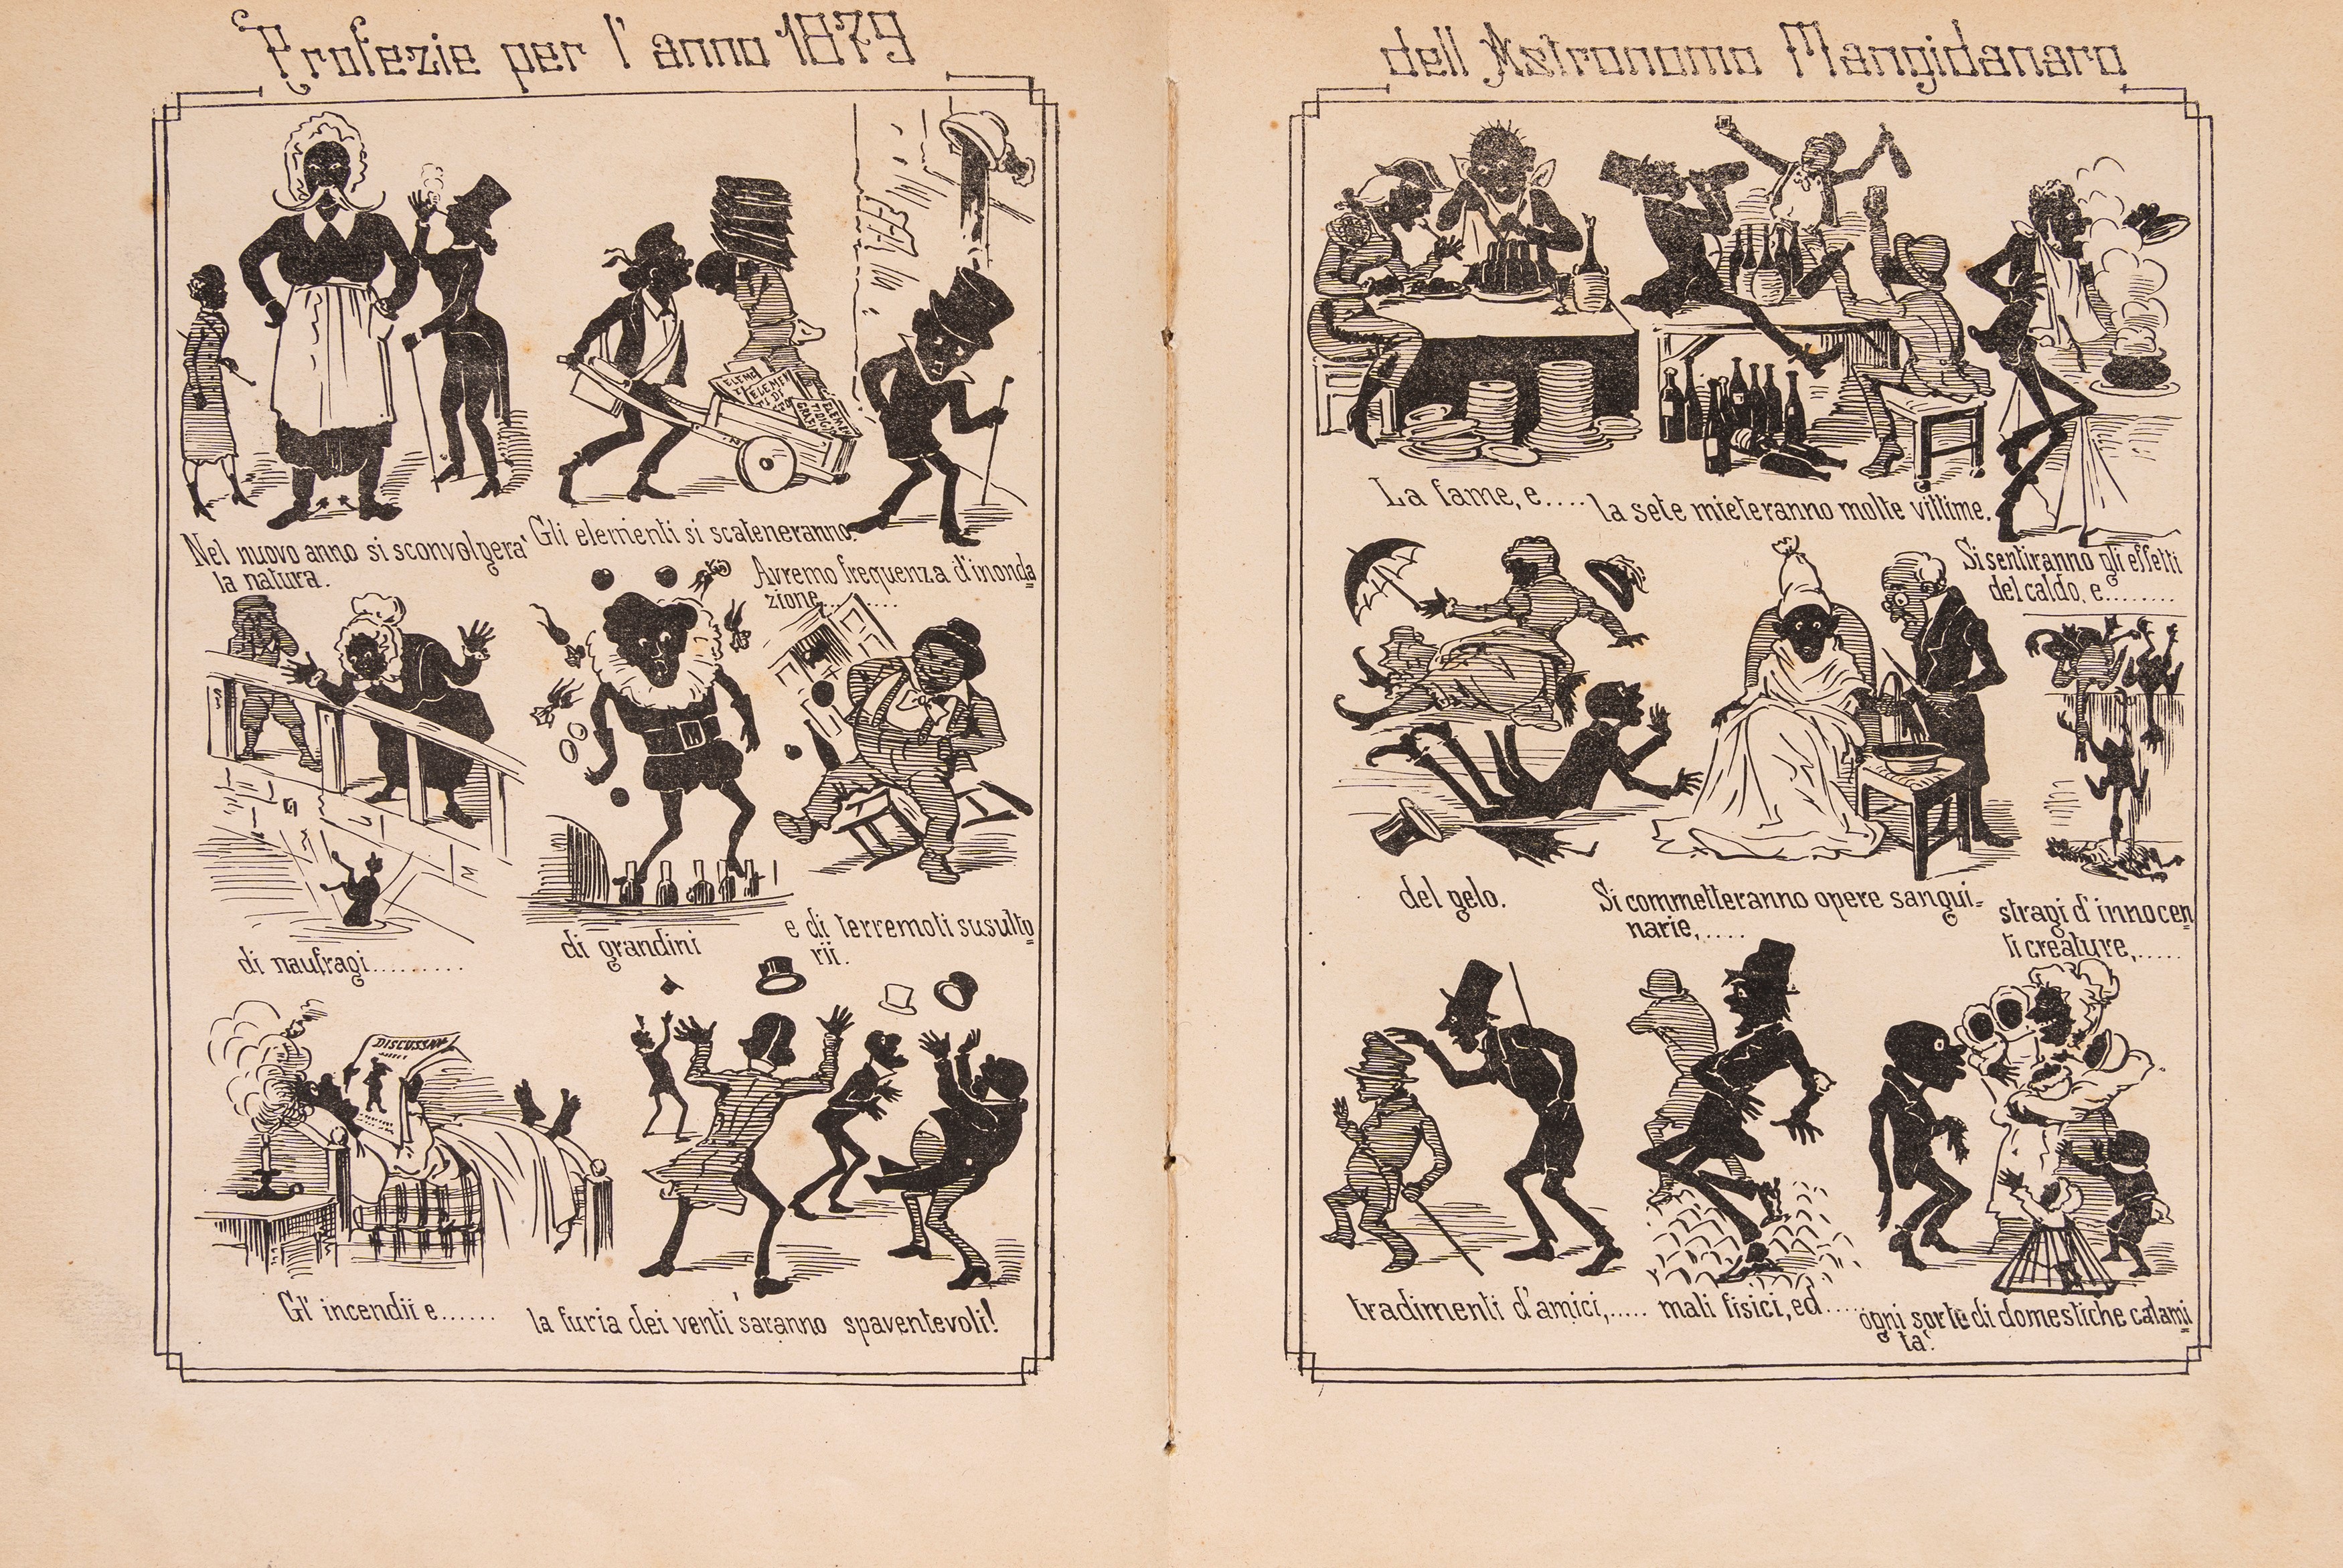 Profezie per l'anno 1879
dell'Astronomo Mangidanaro
Nel nuovo anno si sconvolgera'
la natura.
ELEME
TI
ELEMEN
TI DI
Gli elementi si scateneranno.
Avremo frequenza d'inonda
zione..........
di naufragi..........
di grandini
M
e di terremoti susulto
rii.
DISCUSSION
Gl' incendii e......
la furia dei venti saranno spaventevoli!
La fame, e....
la sete mieteranno molte vittime.
Si sentiranno gli effetti
del caldo, e........
del gelo.
Si commetteranno opere sangui-
narie,.....
stragi d'innocen
ti creature,.....
tradimenti d'amici,.....
mali fisici, ed.....
ogni sorte di domestiche calami
ta'.